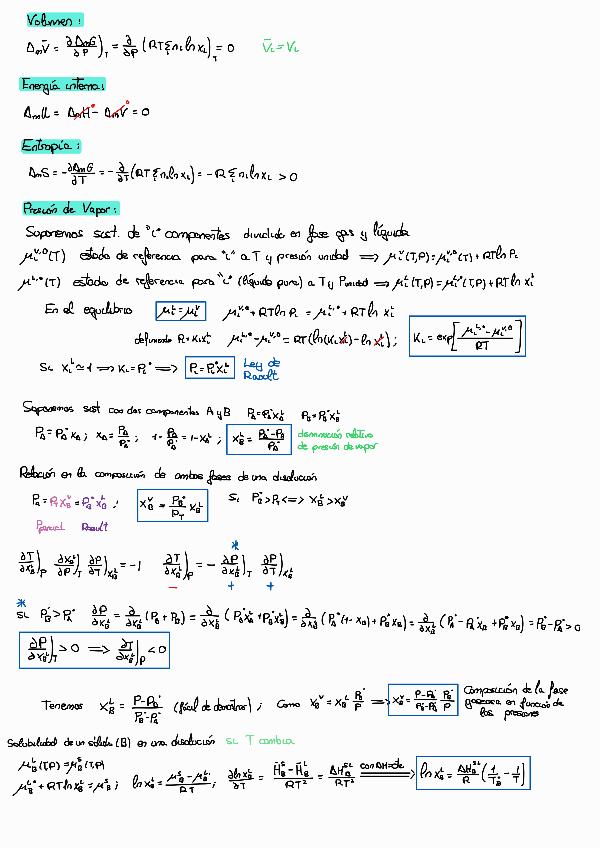 Volumen:
ΔₘV̄ = ∂ΔₘG/∂P)_T = ∂/∂P (RT Σ nᵢ ln xᵢ)_T = 0   V̄ᵢ = Vᵢ
Energía interna:
ΔₘU = ΔₘH - ΔₘV = 0
Entropía:
ΔₘS = -∂ΔₘG/∂T = -∂/∂T (RT Σ nᵢ ln xᵢ) = -R Σ nᵢ ln xᵢ > 0
Presión de Vapor:
Suponemos sist. de "i" componentes dividido en fase gas y líquida
μᵢ^{V,0}(T) estado de referencia para "i" a T y presión unidad ⟹ μᵢ^V(T,P) = μᵢ^{V,0}(T) + RT ln Pᵢ
μᵢ^{L,•}(T) estado de referencia para "i" (líquido puro) a T y P unidad ⟹ μᵢ^L(T,P) = μᵢ^{L,•}(T,P) + RT ln xᵢ^L
En el equilibrio   μᵢ^L = μᵢ^V   μᵢ^{V,0} + RT ln Pᵢ = μᵢ^{L,•} + RT ln xᵢ^L
definiendo Pᵢ = Kᵢxᵢ^L   μᵢ^{L,•} - μᵢ^{V,0} = RT (ln(Kᵢxᵢ^L) - ln xᵢ^L);   Kᵢ = exp[(μᵢ^{L,•} - μᵢ^{V,0})/RT]
Si xᵢ^L ≃ 1 ⟹ Kᵢ = Pᵢ^• ⟹ Pᵢ = Pᵢ^• xᵢ^L   Ley de
Raoult
Suponemos sist con dos componentes A y B   P_A = P_A^• x_A^L   P_B = P_B^• x_B^L
P_A = P_A^• x_A; x_A = P_A/P_A^•; 1 - P_A/P_A^• = 1 - x_A^L; x_B^L = (P_A^• - P_A)/P_A^•   disminución relativa
de presión de vapor
Relación en la composición de ambas fases de una disolución
P_B = P_T x_B^V = P_B^• x_B^L;   x_B^V = P_B^•/P_T x_B^L   Si P_B^• > P_T <=> x_B^L > x_B^V
Pparcial   Raoult
∂T/∂x_B^L)_P ∂x_B^L/∂P)_T ∂P/∂T)_{x_B^L} = -1   ∂T/∂x_B^L)_P = -∂P/∂x_B^L)_T ∂P/∂T)_{x_B^L}
*
- + +
*
Si P_B^• > P_A^•   ∂P/∂x_B^L = ∂/∂x_B^L (P_A + P_B) = ∂/∂x_B^L (P_A^• x_A^L + P_B^• x_B^L) = ∂/∂x_B^L (P_A^• (1 - x_B) + P_B^• x_B) = ∂/∂x_B^L (P_A^• - P_A^• x_B + P_B^• x_B) = P_B^• - P_A^• > 0
∂P/∂x_B^L)_T > 0 ⟹ ∂T/∂x_B^L)_P < 0
Tenemos x_B^L = (P - P_A^•)/(P_B^• - P_A^•) (fácil de demostrar); Como x_B^V = x_B^L P_B^•/P ⟹ x_B^V = (P - P_A^•)/(P_B^• - P_A^•) P_B^•/P   Composición de la fase
gaseosa en función de
las presiones
Solubilidad de un sólido (B) en una disolución   si T cambia
μ_B^L(T,P) = μ_B^S(T,P)
μ_B^{L,•} + RT ln x_B^L = μ_B^S;   ln x_B^L = (μ_B^S - μ_B^{L,•})/RT;   ∂ln x_B^L/∂T = (H̄_B^• - H̄_B^S)/RT² = ΔH_B^{SL}/RT²   con ΔH = cte ⟹ ln x_B^L = ΔH_B^{SL}/R (1/T_B^• - 1/T)